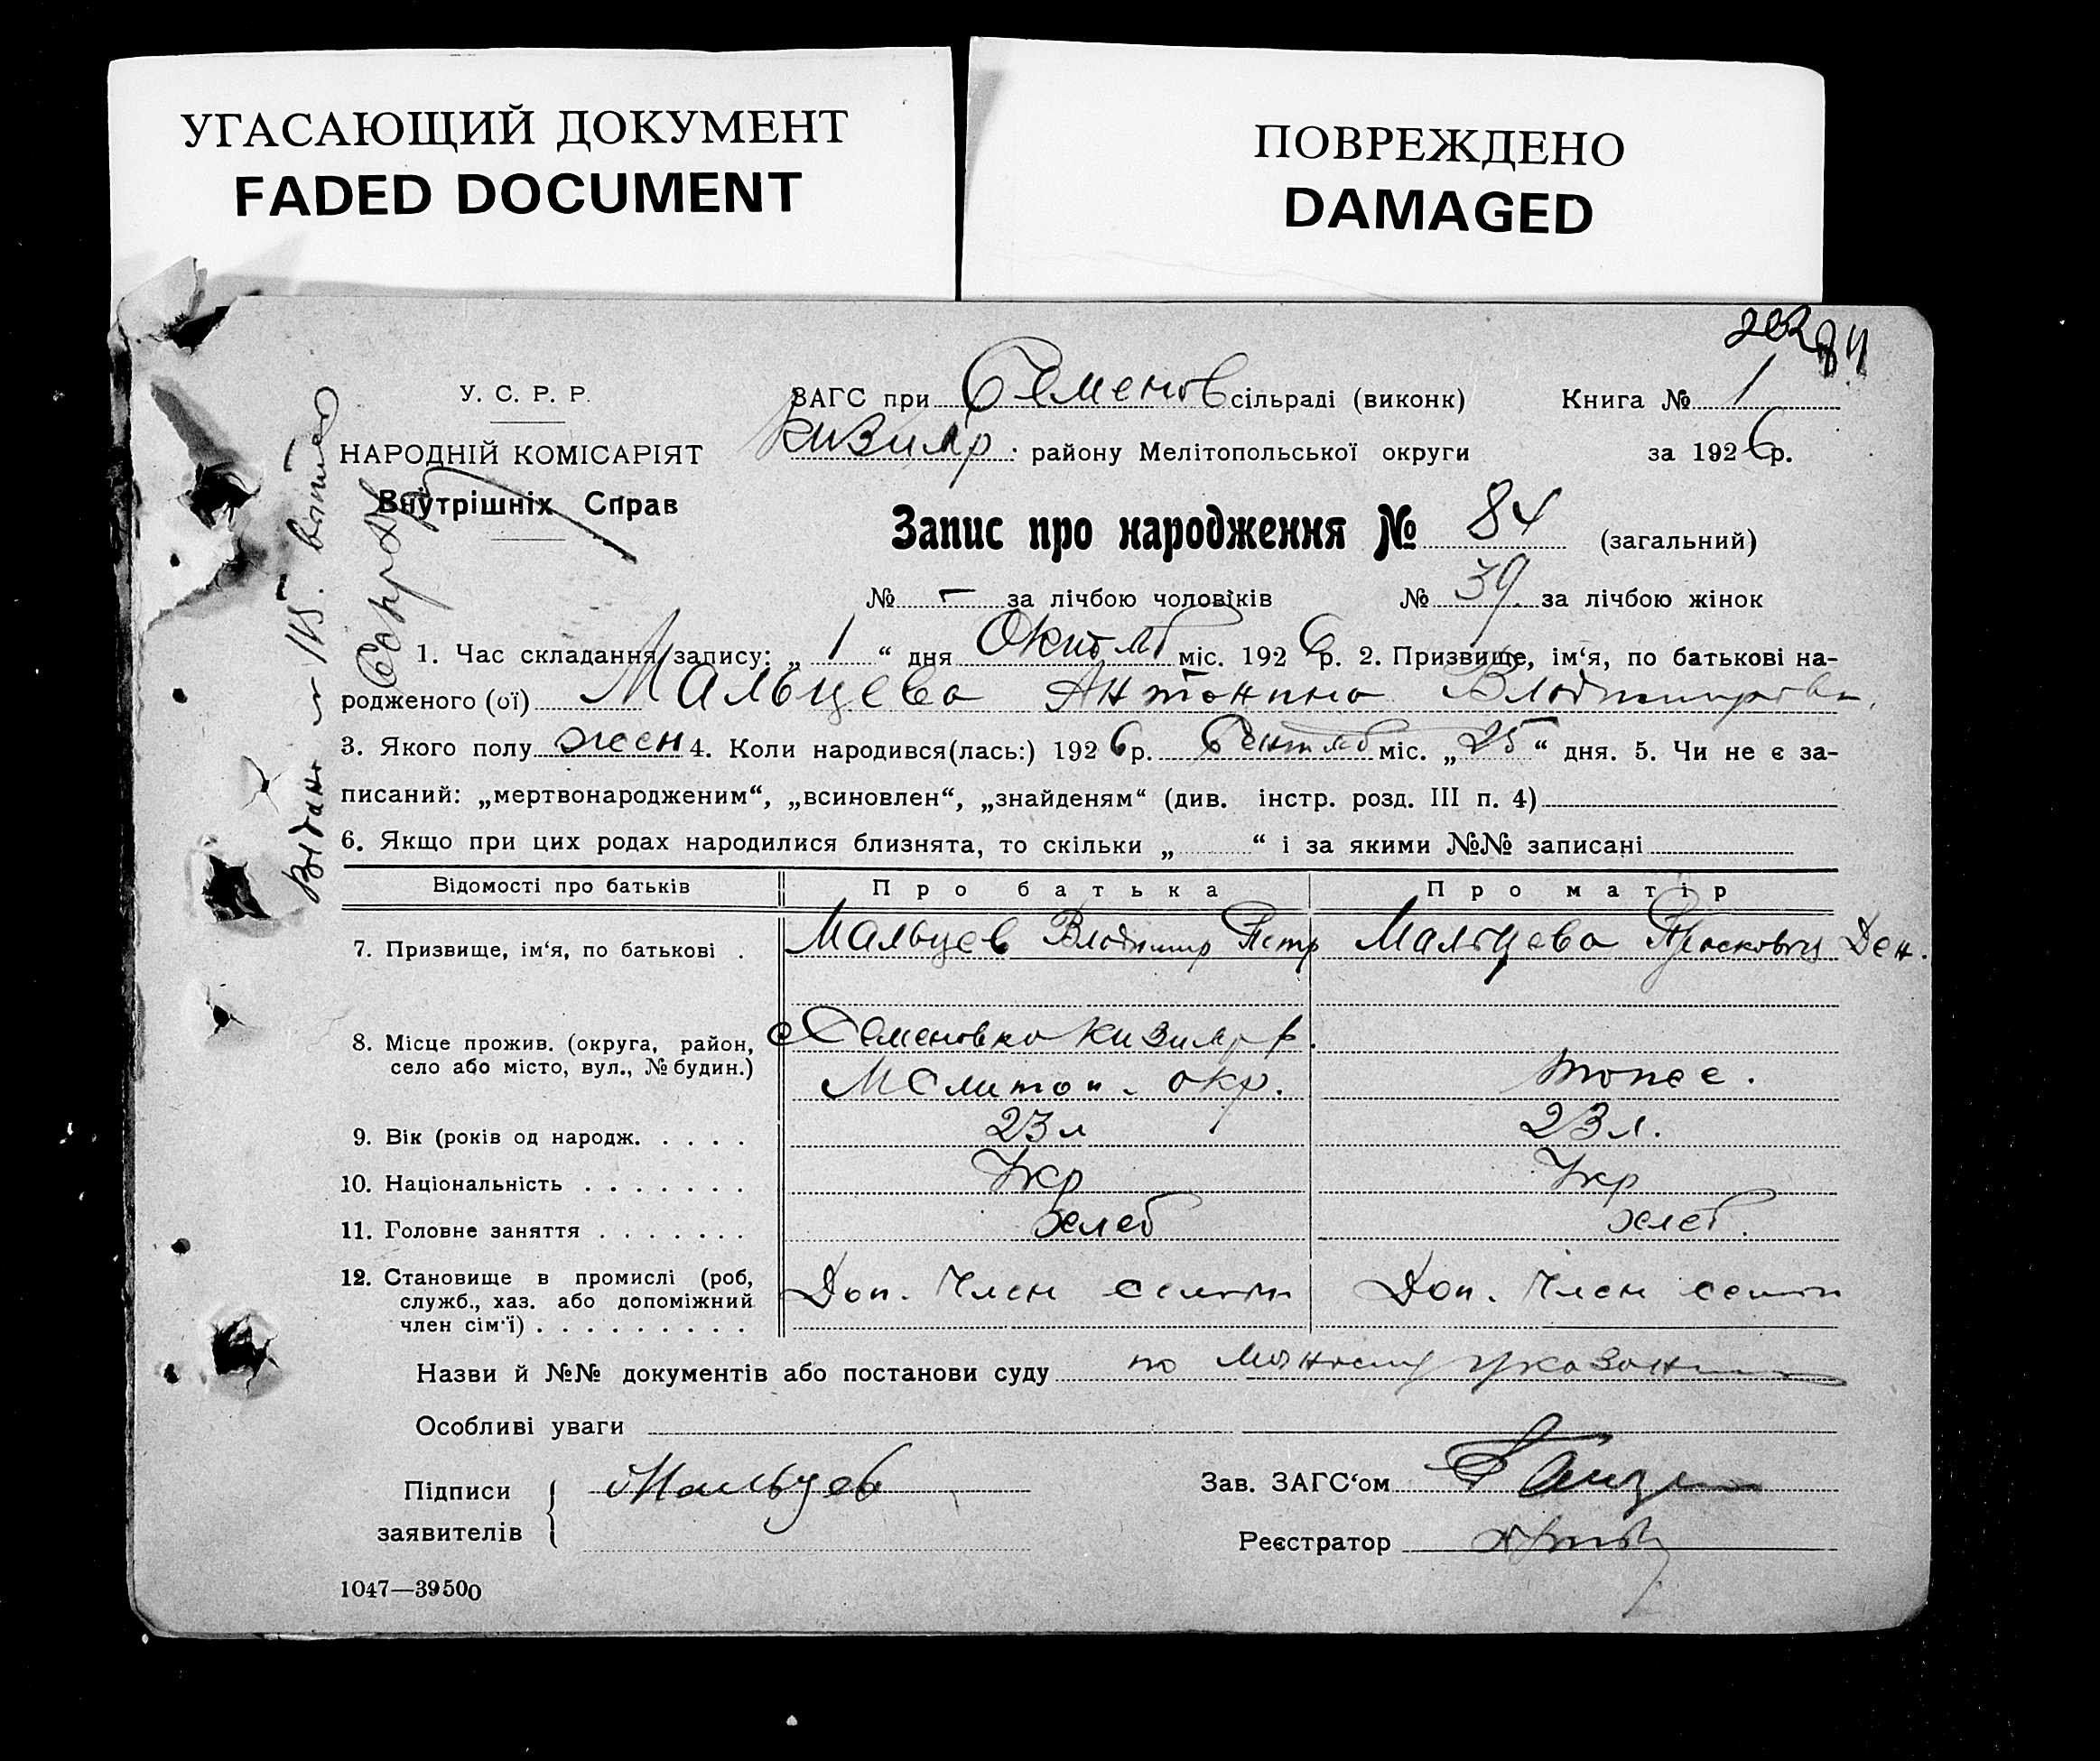 УГАСАЮЩИЙ ДОКУМЕНТ
FADED DOCUMENT
ПОВРЕЖДЕНО
DAMAGED
84
У. С. Р. Р.
НАРОДНІЙ КОМІСАРІЯТ
Внутрішніх Справ
ЗАГС при Семенов сільраді (виконк) Книга № 1
Кизияр. району Мелітопольської округи за 1926 р.
Запис про народження № 84 (загальний)
№ – за лічбою чоловіків № 39 за лічбою жінок
1. Час складання запису: „ 1 “ дня Октяб міс. 1926 р. 2. Призвище, ім‘я, по батькові на-
родженого (ої) Мальцева Антонина Владимировна
3. Якого полу жен 4. Коли народився(лась:) 1926 р. Сентяб міс. „ 25 “ дня. 5. Чи не є за-
писаний: „мертвонародженим“, „всиновлен“, „знайденям“ (див. інстр. розд. III п. 4)
6. Якщо при цих родах народилися близнята, то скільки „ “ і за якими №№ записані
Відомості про батьків Про батька Про матір
7. Призвище, ім‘я, по батькові . Мальцев Владимир Петр Мальцева Прасковья Ден.
8. Місце прожив. (округа, район, село або місто, вул., № будин.) с Семеновка Кизияр р.
Мелитоп. окр. тоже.
9. Вік (років од народж. . . . . 23 л 23 л.
10. Національність . . . . . . . Укр Укр
11. Головне заняття . . . . . . . хлеб хлеб.
12. Становище в промислі (роб, служб., хаз. або допоміжний член сім‘ї) . . . . . . . . . Доп. член семьи Доп. член семьи
Назви й №№ документів або постанови суду по указани
Особливі уваги
Підписи заявителів Мальцев
Зав. ЗАГС‘ом
Реєстратор
1047—39500